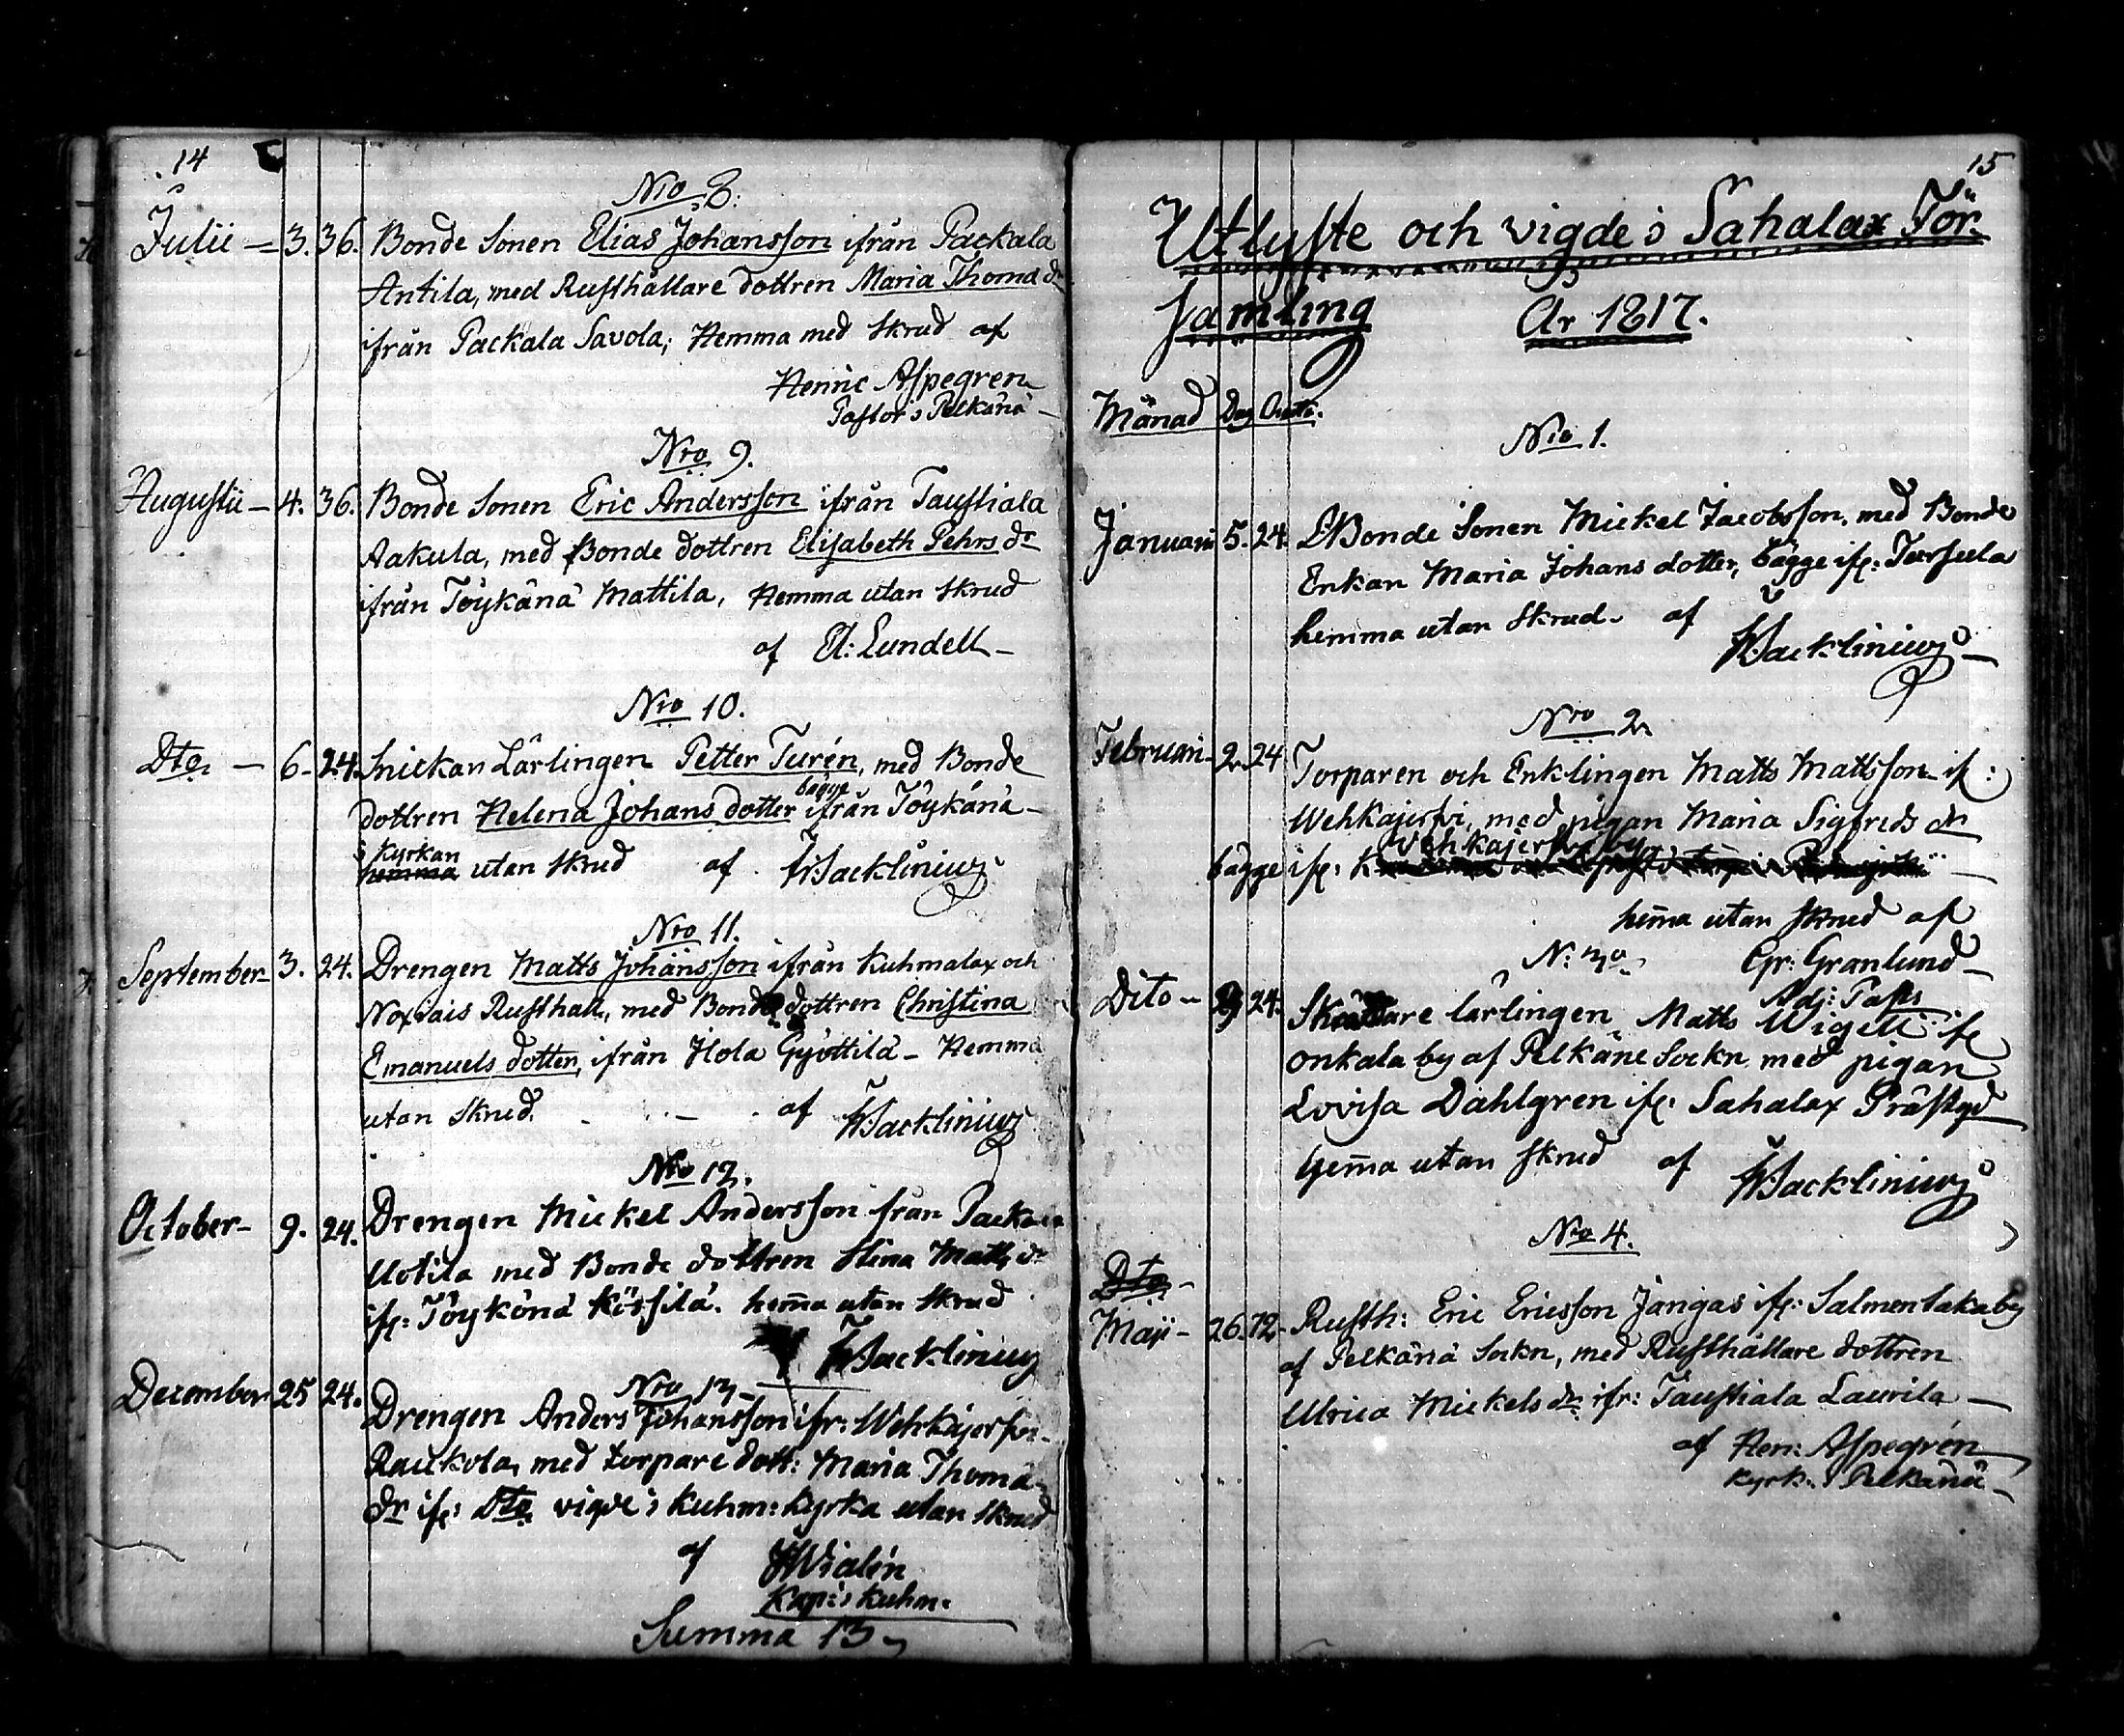 14
Nro 8.
Julii — 3. 36. Bonde Sonen Elias Johansson ifrån Packala
Antila, med Rusthållare dottren Maria Thoma dr
ifrån Packala Savola; Hemma med Skrud af
Henric Aspegren
Pastor i Pelkänä —
Nro 9.
Augustii — 4. 36. Bonde Sonen Eric Andersson ifrån Taustiala
Aakula, med Bonde dottren Elisabeth Pehrs dr
ifrån Töykänä Mattila, Hemma utan Skrud
af El: Lundell —
Nro 10.
Dto — 6. 24. Snickan Lärlingen Petter Turén, med Bonde
dottren Helena Johans dotter bägge ifrån Töykänä —
i Kyrkan
hemma utan Skrud af Wacklinius
Nro 11.
September 3. 24. Drengen Matts Johansson ifrån Kuhmalax och
Noxiais Rusthåll, med Bonde dottren Christina
Emanuels dotter, ifrån Hola Gyöttilä — Hemma
utan Skrud. — af Wacklinius
Nro 12.
October — 9. 24. Drengen Mickel Andersson från
Uotila med Bonde dottren Stina Matts dr
ifr: Töykönä Kössilä. hemma utan Skrud
Wacklinius
Nro 13
December 25 24. Drengen Anders Johansson ifr: Wehkajerfvi
Raukola, med torpare dott: Maria Thoma
dr ifr: Dto vigde i Kuhm: Kyrka utan Skrud
af HWialén
Kap: i Kuhm.
Summa 13
15
Utlyste och vigde i Sahalax För-
samling År 1817.
Månad Dag
Nro 1.
Januari 5. 24. Bonde Sonen Mickel Jacobsson, med Bonde
Enkan Maria Johans dotter, bägge ifr: Tursula
hemma utan Skrud. af
Wacklinius —
Nro 2
Februari 2. 24 Torparen och Enklingen Matts Mattsson ifr:
Wehkajerfvi, med pigan Maria Sigfreds dr
Wehkajerfvi by
bägge ifr:
hemma utan Skrud af
N: 3o Gr: Granlund —
Adj: Past:
Dito — 24. lärlingen Matts Wigell ifr
Onkala by af Pelkäne Sockn med pigan
Lovisa Dahlgren ifr. Sahalax Prästgd
hemma utan Skrud af Wacklinius
Nro 4.
Dto —
Maji — 26. 12. Rusth: Eric Ericsson Jangas ifr: Salmentaka by
af Pelkänä Sockn, med Rusthållare dottren
Ulrica Mickels dr ifr: Taustiala Laurila —
af Hen: Aspegrén
Kyrk. i Pelkänä —